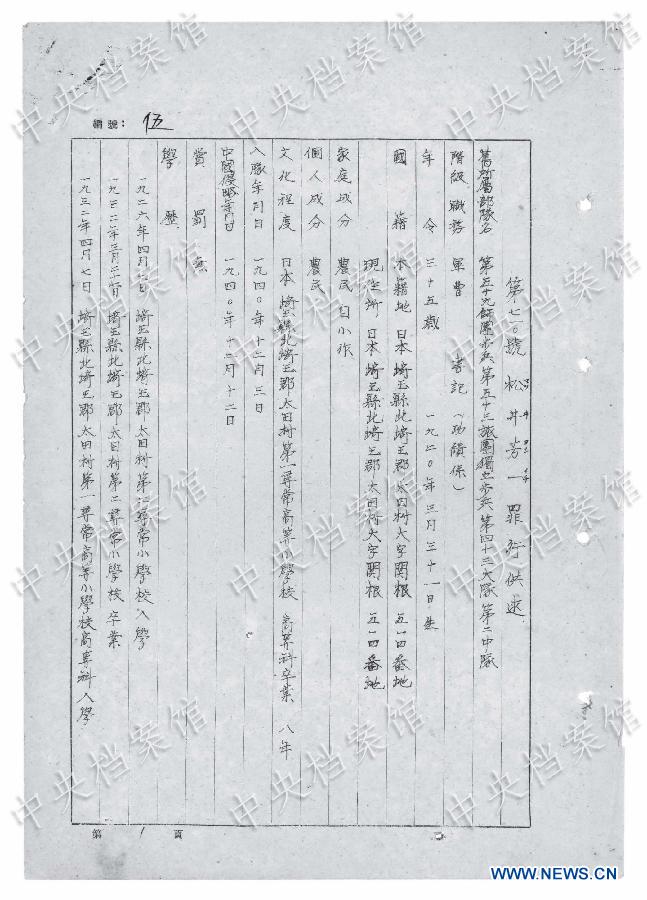 編號：伍
第七一〇號 松井芳一 罪行供述
舊所屬部隊名 第五十九師團步兵第五十三旅團獨立步兵第四十三大隊第二中隊
階級、職務 軍曹 書記（功績係）
年令 三十五歲 一九二〇年三月三十一日生
國籍 本籍地 日本埼玉縣北埼玉郡太田村大字関根 五一四番地
現住所、日本埼玉縣北埼玉郡太田村大字関根 五一四番地
家庭成分 農民 自小作
個人成分 農民
文化程度 日本埼玉縣北埼玉郡太田村第一尋常高等小學校 高等科卒業 八年
入隊年月日 一九四〇年十二月三日
中國侵略年月日 一九四〇年十二月十二日
賞罰 無
學歷
一九二六年四月 日 埼玉縣北埼玉郡太田村第二尋常小學校入學
一九三二年三月二十 日 埼玉縣北埼玉郡太田村第二尋常小學校卒業
一九三二年四月七日 埼玉縣北埼玉郡太田村第一尋常高等小學校高等科入學
第 1 頁
中央档案馆
中央档案馆
中央档案馆
中央档案馆
中央档案馆
中央档案馆
中央档案馆
中央档案馆
中央档案馆
WWW.NEWS.CN